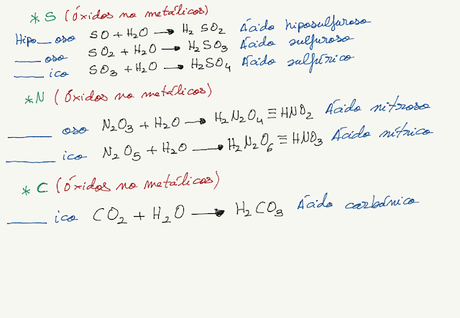 * S (Óxidos no metálicos)
Hipo___oso SO + H₂O → H₂ SO₂ Ácido hiposulfuroso
___ oso SO₂ + H₂O → H₂SO₃ Ácido sulfuroso
___ ico SO₃ + H₂O → H₂SO₄ Ácido sulfúrico
* N (Óxidos no metálicos)
___ oso N₂O₃ + H₂O → H₂N₂O₄ ≡ HNO₂ Ácido nitroso
___ ico N₂O₅ + H₂O → H₂N₂O₆ ≡ HNO₃ Ácido nítrico
* C (Óxidos no metálicos)
___ ico CO₂ + H₂O → H₂CO₃ Ácido carbónico